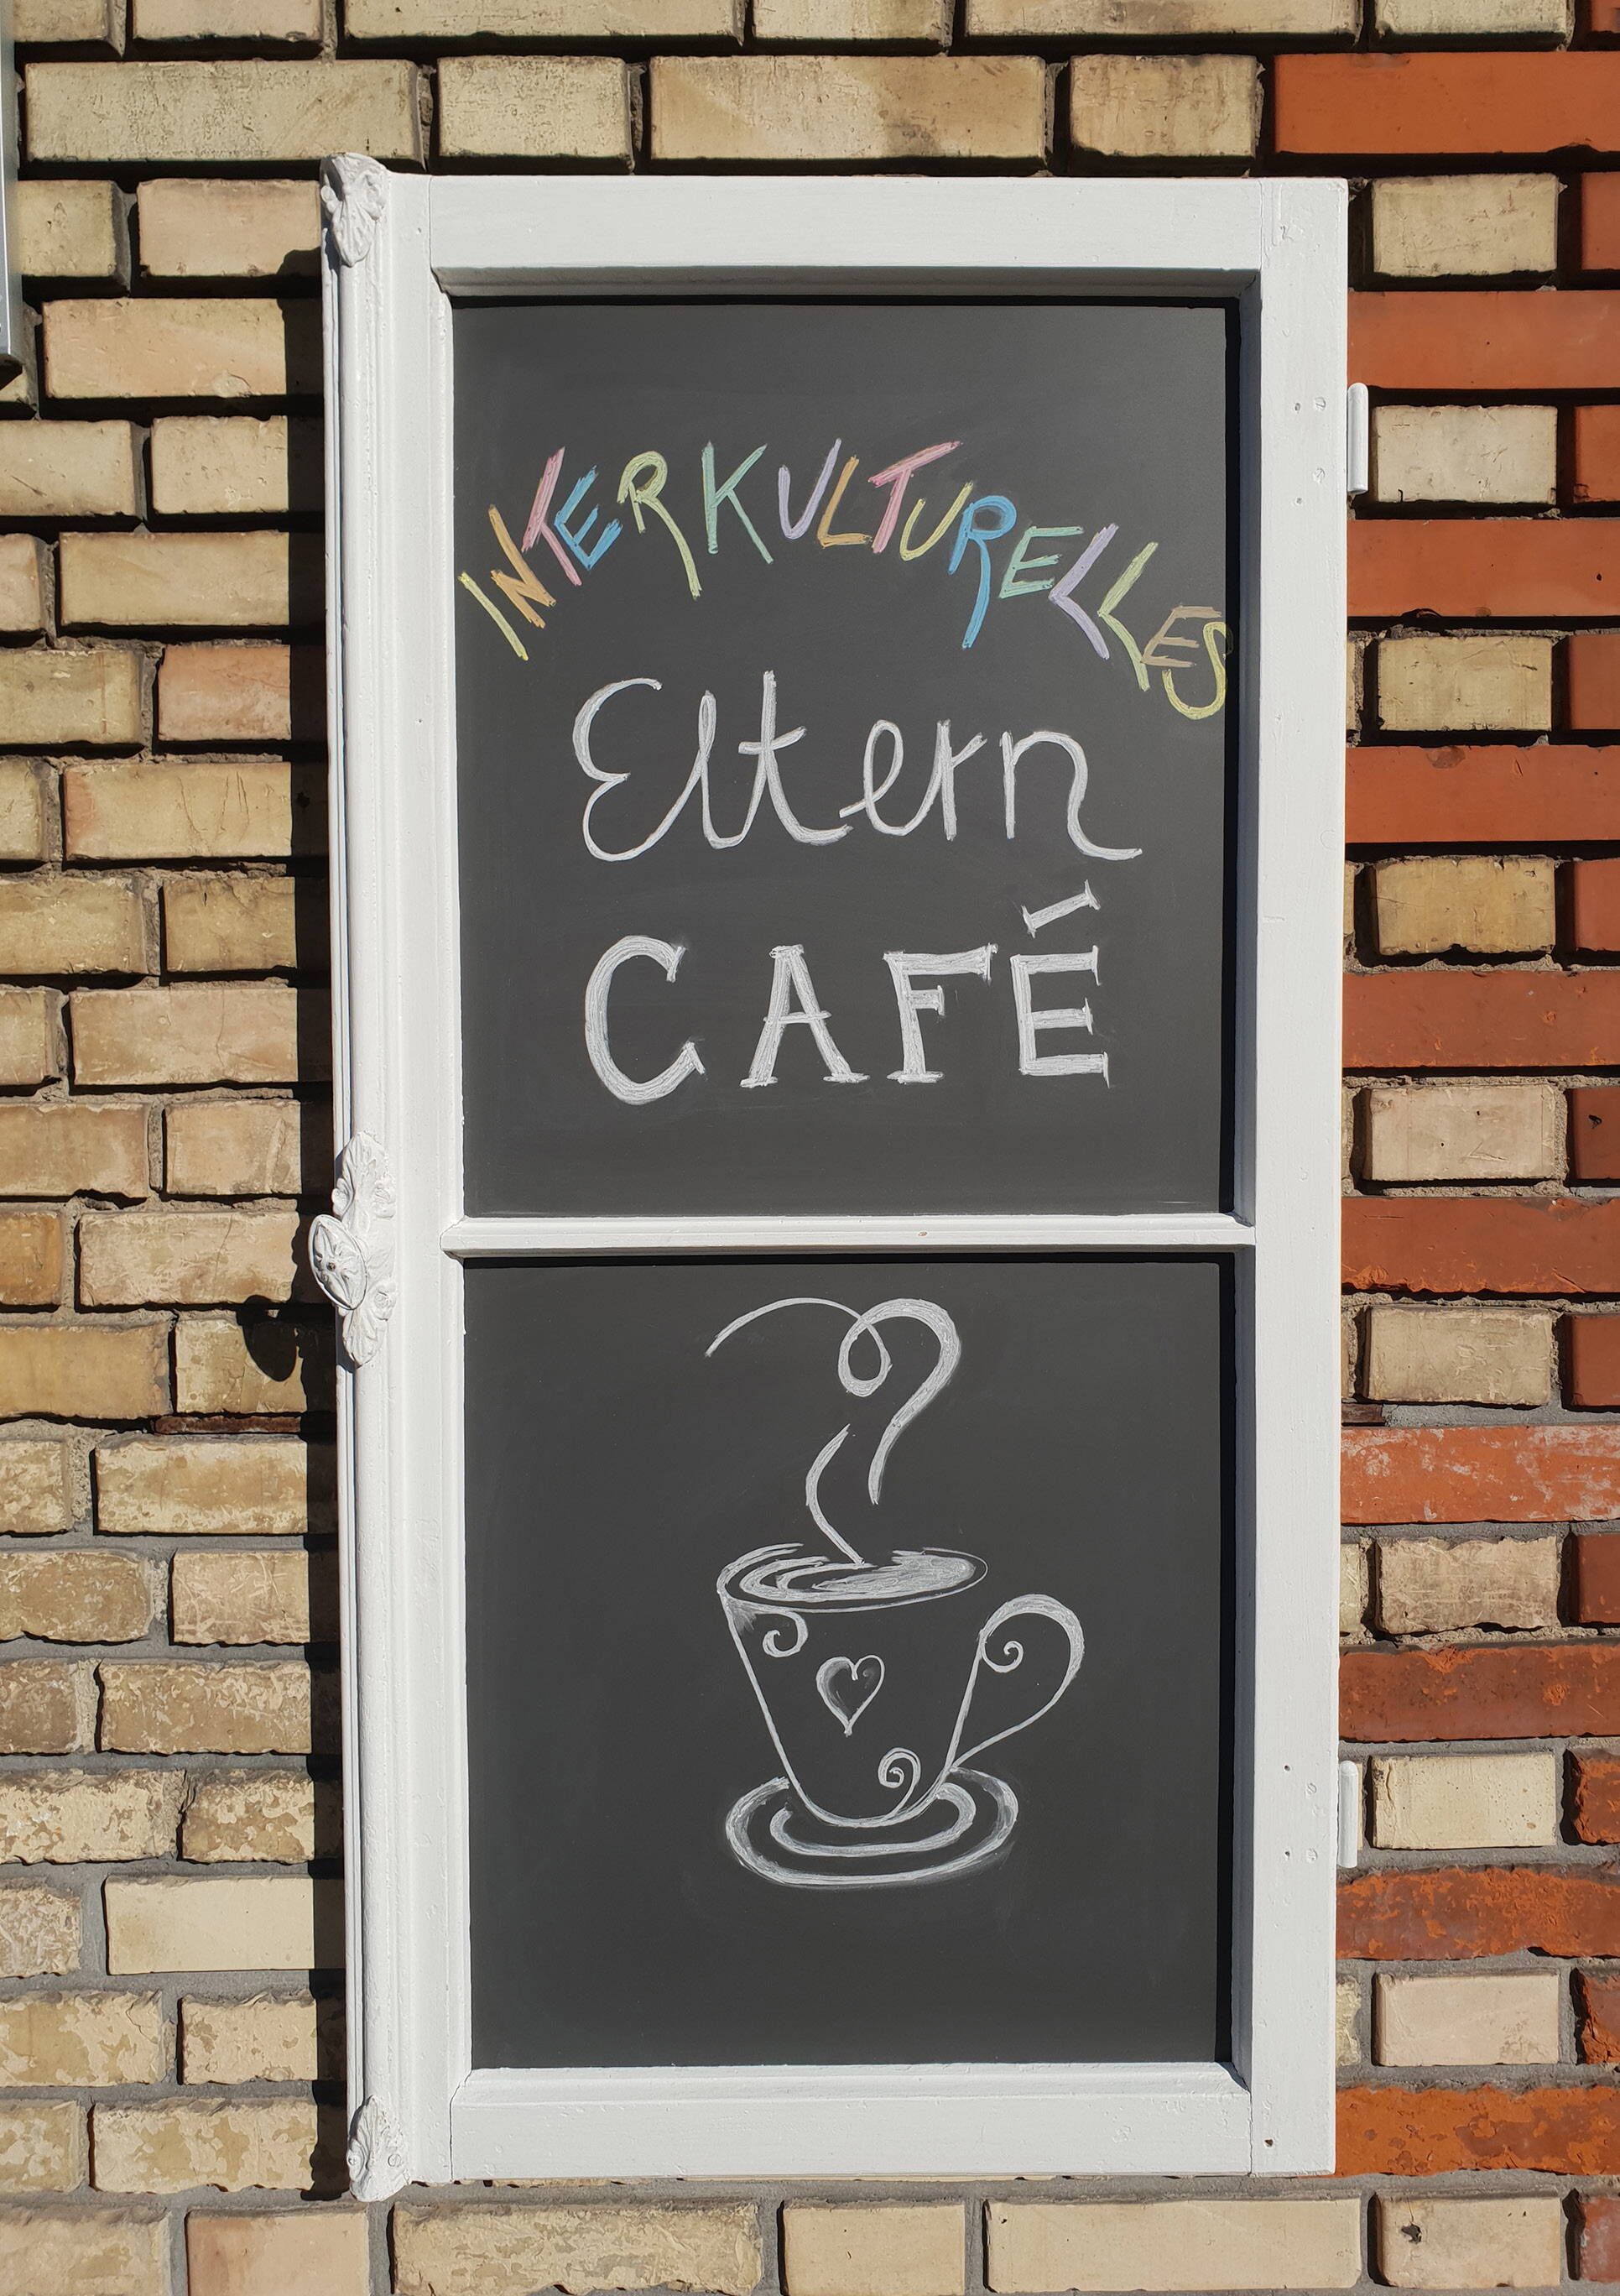 INTERKULTURELLES
Eltern
CAFÉ